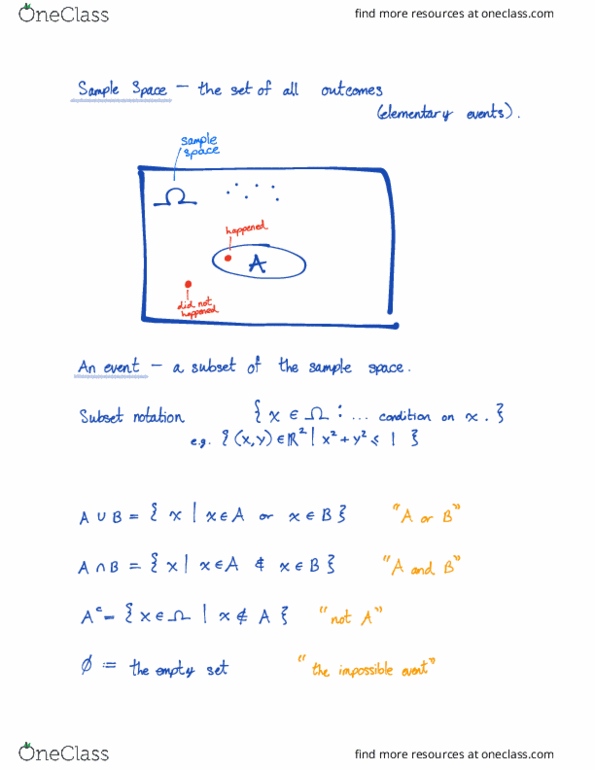 OneClass
find more resources at oneclass.com
Sample Space — the set of all outcomes
(elementary events).
sample
space
Ω
happened
A
did not
happened
An event — a subset of the sample space.
Subset notation { x ∈ Ω : ... condition on x . }
e.g. { (x,y) ∈ ℝ² | x² + y² ≤ 1 }
A ∪ B = { x | x ∈ A or x ∈ B } "A or B"
A ∩ B = { x | x ∈ A & x ∈ B } "A and B"
Aᶜ = { x ∈ Ω | x ∉ A } "not A"
∅ := the empty set "the impossible event"
OneClass
find more resources at oneclass.com